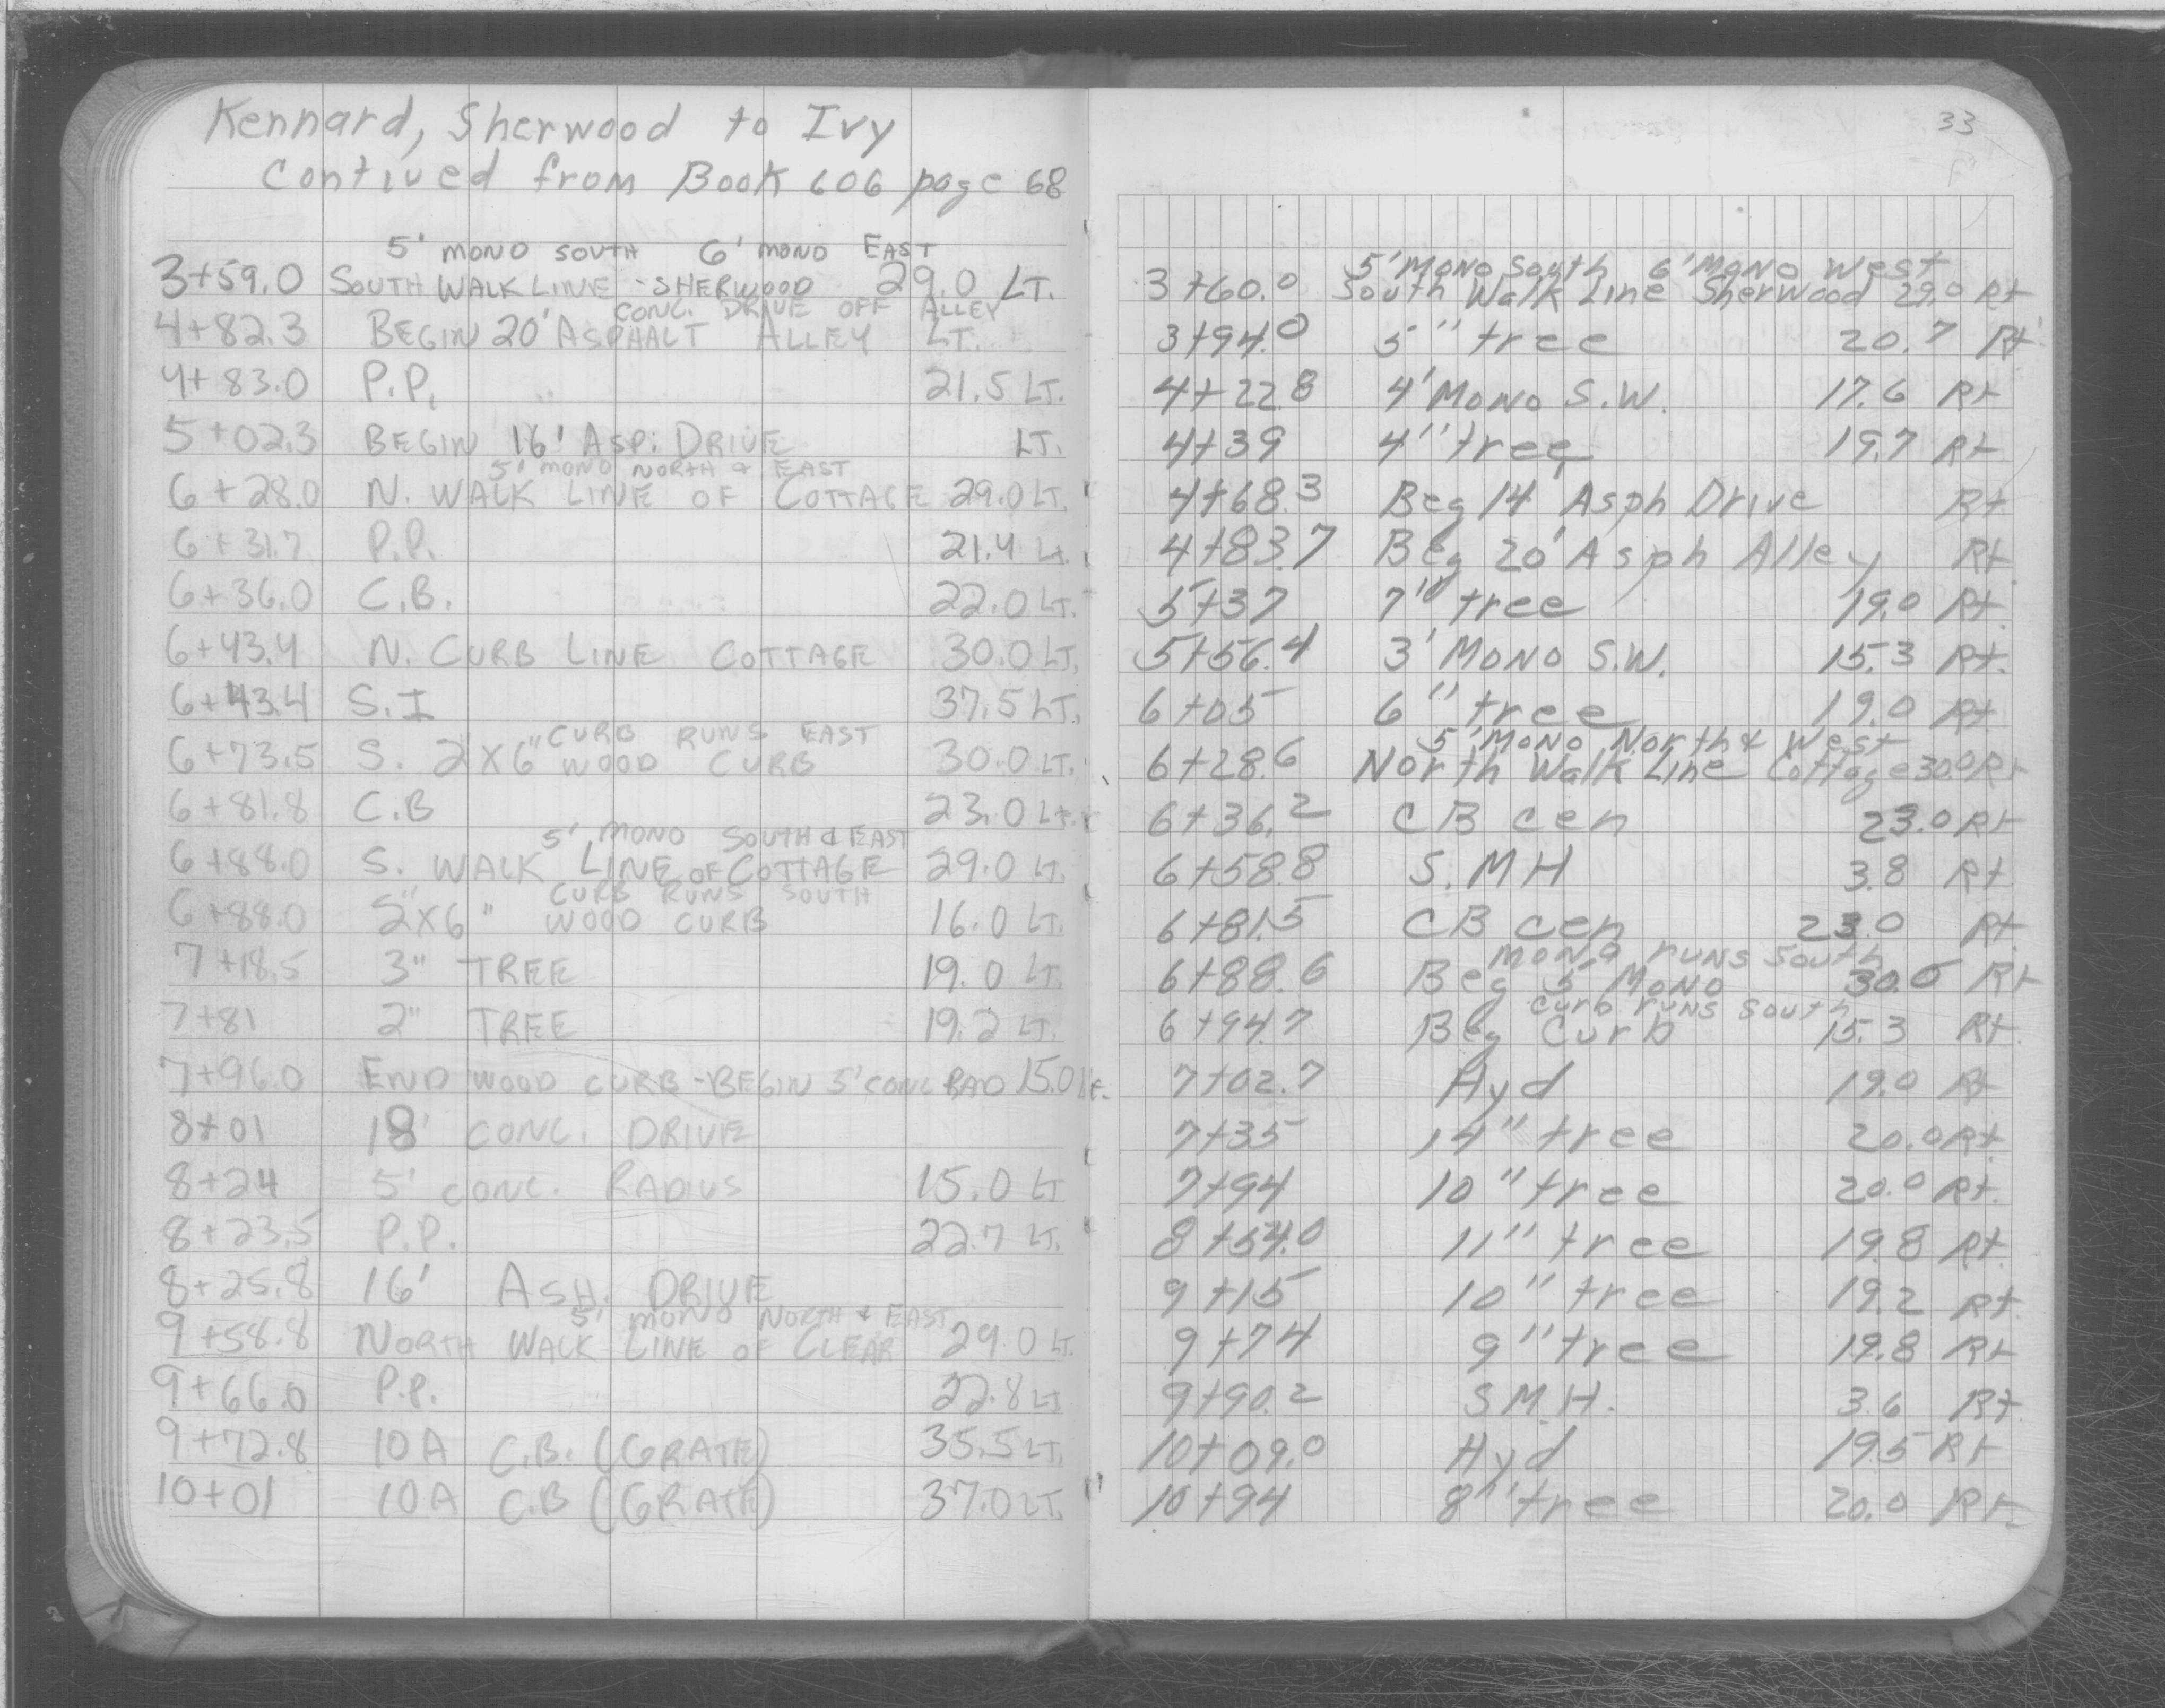 Kennard, Sherwood to Ivy
Contiued from Book 606 page 68
5' MONO SOUTH 6' MONO EAST
3+59.0 SOUTH WALK LINE - SHERWOOD 29.0 LT.
CONC. DRIVE OFF ALLEY
4+82.3 BEGIN 20' ASPHALT ALLEY LT.
4+83.0 P.P. 21.5 LT.
5+02.3 BEGIN 16' ASP. DRIVE LT.
5' MONO NORTH & EAST
6+28.0 N. WALK LINE OF COTTAGE 29.0 LT.
6+31.7 P.P. 21.4 LT.
6+36.0 C.B. 22.0 LT.
6+43.4 N. CURB LINE COTTAGE 30.0 LT.
6+43.4 S.I 37.5 LT.
CURB RUNS EAST
6+73.5 S. 2"X6" WOOD CURB 30.0 LT.
6+81.8 C.B 23.0 LT.
5' MONO SOUTH & EAST
6+88.0 S. WALK LINE OF COTTAGE 29.0 LT.
CURB RUNS SOUTH
6+88.0 2"X6" WOOD CURB 16.0 LT.
7+18.5 3" TREE 19.0 LT.
7+81 2" TREE 19.2 LT.
7+96.0 END WOOD CURB - BEGIN 5' CONC RAD 15.0 LT.
8+01 18' CONC. DRIVE
8+24 5' CONC. RADIUS 15.0 LT
8+23.5 P.P. 22.7 LT.
8+25.8 16' ASH. DRIVE
5' MONO NORTH & EAST
9+58.8 NORTH WALK LINE OF CLEAR 29.0 LT.
9+66.0 P.P. 22.8 LT
9+72.8 10A C.B. (GRATE) 35.5 LT.
10+01 10A C.B (GRATE) 37.0 LT.
33
5' Mono South 6' Mono West
3+60.0 South Walk Line Sherwood 29.0 Rt
3+94.0 5" tree 20.7 Rt
4+22.8 4' Mono S.W. 17.6 Rt
4+39 4" tree 19.7 Rt
4+68.3 Beg 14' Asph Drive Rt
4+83.7 Beg 20' Asph Alley Rt
5+37 7" tree 19.0 Rt.
5+56.4 3' Mono S.W. 15.3 Rt.
6+05 6" tree 19.0 Rt
5' Mono North & West
6+28.6 North Walk Line Cottage 30.0 Rt
6+36.2 CB cen 23.0 Rt
6+58.8 S.MH 3.8 Rt
6+81.5 CB cen 23.0 Rt
mono runs South
6+88.6 Beg 5' Mono 30.0 Rt
curb runs South
6+94.7 Beg Curb 15.3 Rt
7+02.7 Hyd 19.0 Rt
7+35 14" tree 20.0 Rt.
7+94 10" tree 20.0 Rt.
8+54.0 11" tree 19.8 Rt.
9+15 10" tree 19.2 Rt.
9+74 9" tree 19.8 Rt
9+90.2 S.M.H. 3.6 Rt
10+09.0 Hyd 19.5 Rt
10+94 8" tree 20.0 Rt.